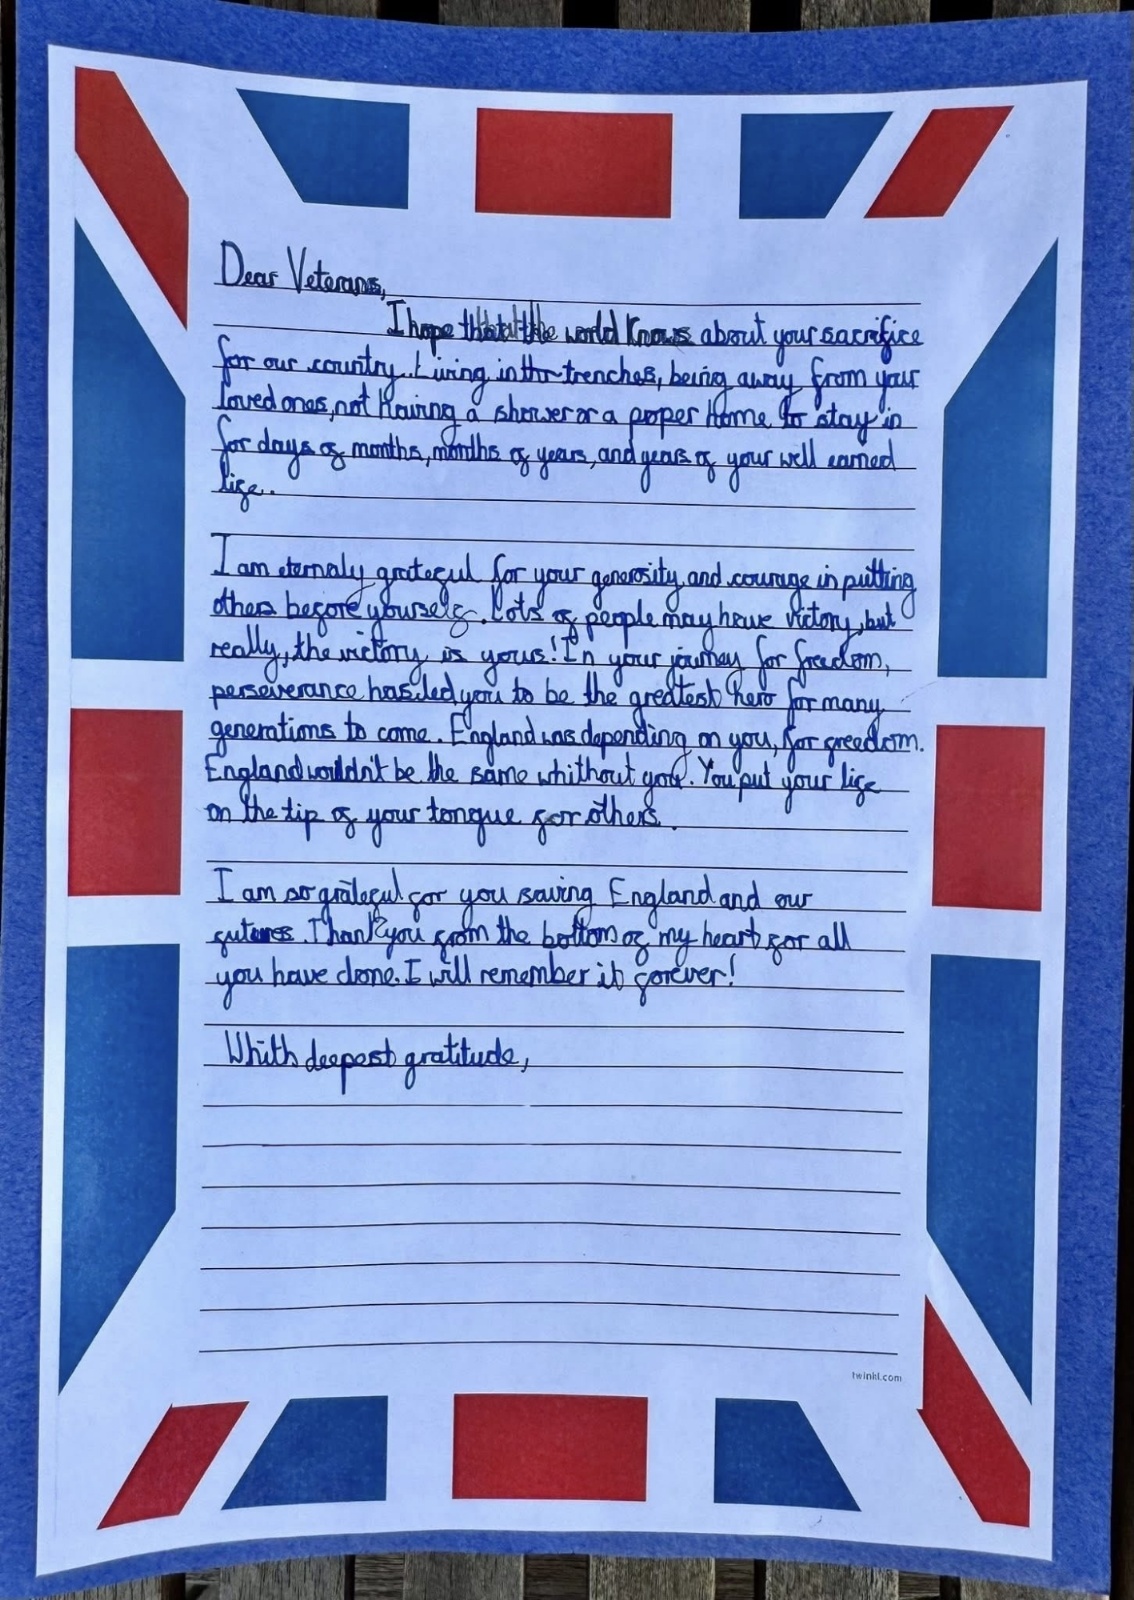 Dear Veterans,
I hope that the world knows about your sacrifice
for our country. Living in the trenches, being away from your
loved ones, not having a shower or a poper home to stay in
for days of months, months of years, and years of your well earned
life.
I am eternaly grateful for your generosity and courage in putting
others before yourself. Lots of people may have victory, but
really, the victory is yours! In your journey for freedom,
perseverance has led you to be the greatest hero for many
generations to come. England was depending on you, for freedom.
England wouldn't be the same whithout you. You put your life
on the tip of your tongue for others.
I am so grateful for you saving England and our
futures. Thank you from the bottom of my heart for all
you have done. I will remember it forever!
Whith deepest gratitude,
twinkl.com